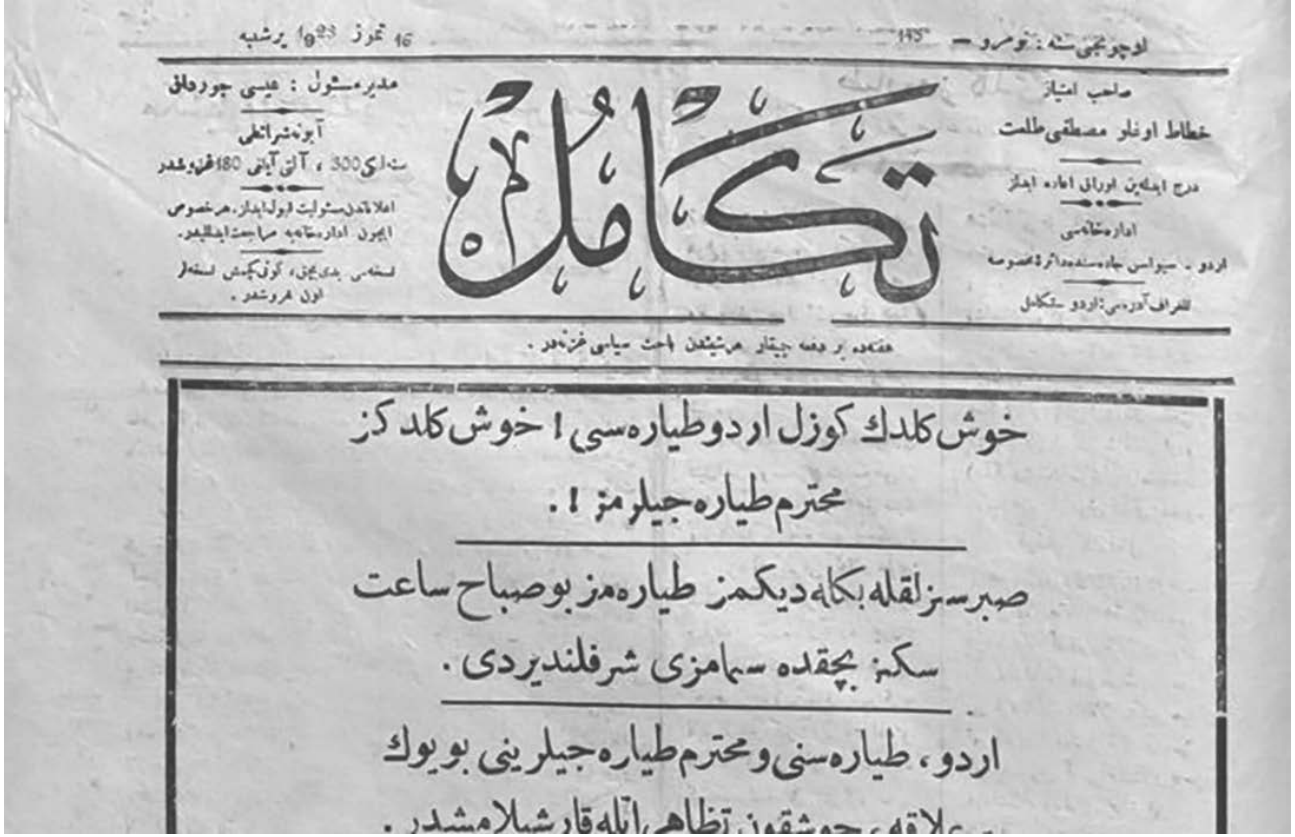 اوچونجی سنه : نومرو — 145
16 تموز 1923 پرشنبه
صاحب امتیاز
خطاط اوغلو مصطفی طلعت
درج ایدلمین اوراق اعاده ایدلمز
اداره خانه سی
اردو ـ سیواس جاده سنده دائرهٔ مخصوصه
تلغراف آدرسی : اردو ـ تکامل
تکامل
مدیر مسئول : عیسی جوردانی
آبونه شرائطی
سنه لکی 300 ، آلتی آیلغی 180 غروشدر
اعلاناتدن مسئولیت قبول ایدلمز. هر خصوص
ایچون اداره خانه یه مراجعت ایدلملیدر.
نسخه سی یدی بچق، کونی کچمش نسخه لر
اون غروشدر .
هفته ده بر دفعه چیقار هر شیئدن باحث سیاسی غزته در .
خوش کلدك کوزل اردو طیاره سی ! خوش کلدکز
محترم طیاره جیلرمز ! .
صبرسزلقله بکله دیکمز طیاره مز بو صباح ساعت
سکز بچقده سمامزی شرفلندیردی .
اردو ، طیاره سنی و محترم طیاره جیلرینی بویوك
بر علاقه ، جوشقون تظاهراتله قارشیلامشدر .